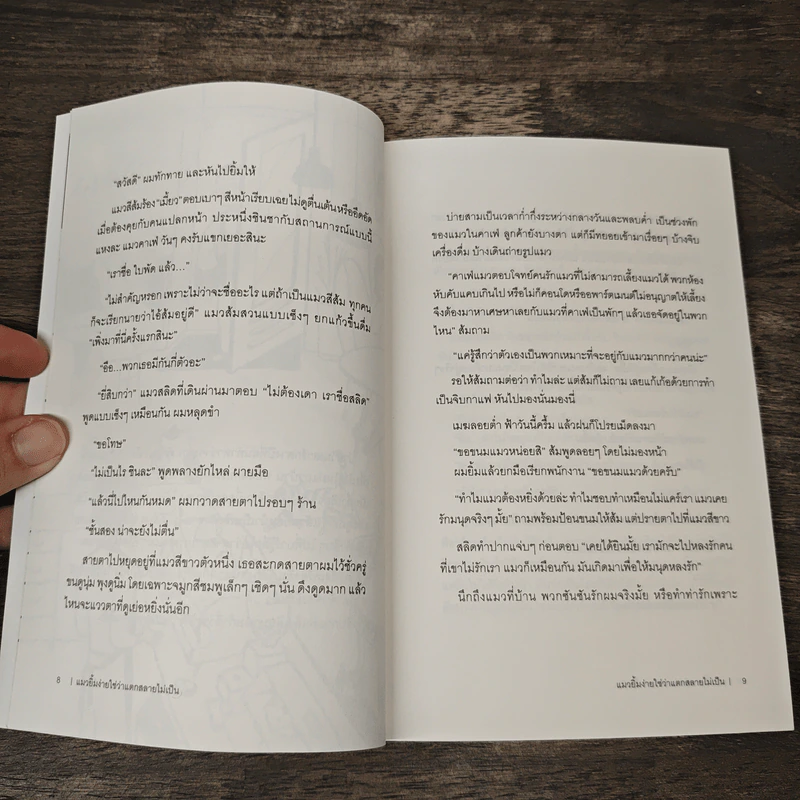 "สวัสดี" ผมทักทาย และหันไปยิ้มให้
แมวสีส้มร้อง"เมี้ยว"ตอบเบาๆ สีหน้าเรียบเฉยไม่ดูตื่นเต้นหรืออึดอัด
เมื่อต้องคุยกับคนแปลกหน้า ประหนึ่งชินชากับสถานการณ์แบบนี้
แหงละ แมวคาเฟ่ วันๆ คงรับแขกเยอะสินะ
"เราชื่อ ใบพัด แล้ว..."
"ไม่สำคัญหรอก เพราะไม่ว่าจะชื่ออะไร แต่ถ้าเป็นแมวสีส้ม ทุกคน
ก็จะเรียกนายว่าไอ้ส้มอยู่ดี" แมวส้มสวนแบบเซ็งๆ ยกแก้วขึ้นดื่ม
"เพิ่งมาที่นี่ครั้งแรกสินะ"
"อือ...พวกเธอมีกันกี่ตัวอะ"
"ยี่สิบกว่า" แมวสลิดที่เดินผ่านมาตอบ "ไม่ต้องเดา เราชื่อสลิด"
พูดแบบเซ็งๆ เหมือนกัน ผมหลุดขำ
"ขอโทษ"
"ไม่เป็นไร ชินละ" พูดพลางยักไหล่ ผายมือ
"แล้วนี่ไปไหนกันหมด" ผมกวาดสายตาไปรอบๆ ร้าน
"ชั้นสอง น่าจะยังไม่ตื่น"
สายตาไปหยุดอยู่ที่แมวสีขาวตัวหนึ่ง เธอสะกดสายตาผมไว้ชั่วครู่
ขนดูนุ่ม พุงดูนิ่ม โดยเฉพาะจมูกสีชมพูเล็กๆ เชิดๆ นั่น ดึงดูดมาก แล้ว
ไหนจะแววตาที่ดูเย่อหยิ่งนั่นอีก
8 | แมวยิ้มง่ายใช่ว่าแตกสลายไม่เป็น
บ่ายสามเป็นเวลาก้ำกึ่งระหว่างกลางวันและพลบค่ำ เป็นช่วงพัก
ของแมวในคาเฟ่ ลูกค้ายังบางตา แต่ก็มีทยอยเข้ามาเรื่อยๆ บ้างจิบ
เครื่องดื่ม บ้างเดินถ่ายรูปแมว
"คาเฟ่แมวตอบโจทย์คนรักแมวที่ไม่สามารถเลี้ยงแมวได้ พวกห้อง
หับคับแคบเกินไป หรือไม่ก็คอนโดหรืออพาร์ตเมนต์ไม่อนุญาตให้เลี้ยง
จึงต้องมาหาเศษหาเลยกับแมวที่คาเฟ่เป็นพักๆ แล้วเธอจัดอยู่ในพวก
ไหน" ส้มถาม
"แค่รู้สึกว่าตัวเองเป็นพวกเหมาะที่จะอยู่กับแมวมากกว่าคนน่ะ"
รอให้ส้มถามต่อว่า ทำไมล่ะ แต่ส้มก็ไม่ถาม เลยแก้เก้อด้วยการทำ
เป็นจิบกาแฟ หันไปมองนั่นมองนี่
เมฆลอยต่ำ ฟ้าวันนี้ครึ้ม แล้วฝนก็โปรยเม็ดลงมา
"ขอขนมแมวหน่อยสิ" ส้มพูดลอยๆ โดยไม่มองหน้า
ผมยิ้มแล้วยกมือเรียกพนักงาน "ขอขนมแมวด้วยครับ"
"ทำไมแมวต้องหยิ่งด้วยล่ะ ทำไมชอบทำเหมือนไม่แคร์เรา แมวเคย
รักมนุดจริงๆ มั้ย" ถามพร้อมป้อนขนมให้ส้ม แต่ปรายตาไปที่แมวสีขาว
สลิดทำปากแจ่บๆ ก่อนตอบ "เคยได้ยินมั้ย เรามักจะไปหลงรักคน
ที่เขาไม่รักเรา แมวก็เหมือนกัน มันเกิดมาเพื่อให้มนุดหลงรัก"
นึกถึงแมวที่บ้าน พวกซันซันรักผมจริงมั้ย หรือทำท่ารักเพราะ
แมวยิ้มง่ายใช่ว่าแตกสลายไม่เป็น | 9